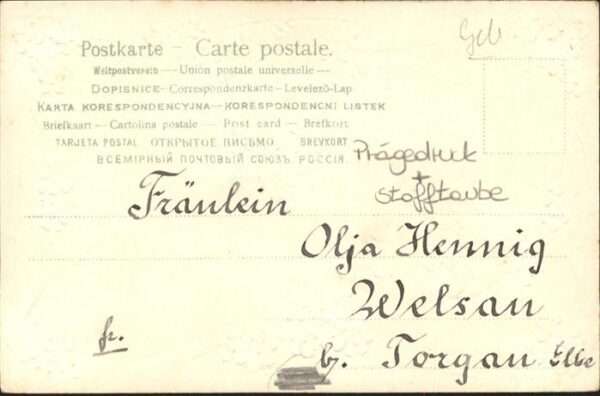 Geb
Postkarte – Carte postale.
Weltpostverein — Union postale universelle —
DOPISNICE – Correspondenzkarte – Levelező-Lap
KARTA KORESPONDENCYJNA – KORESPONDENČNÍ LISTEK
Briefkaart – Cartolina postale – Post card – Brefkort
TARJETA POSTAL ОТКРЫТОЕ ПИСЬМО BREVKORT
ВСЕМІРНЫЙ ПОЧТОВЫЙ СОЮЗЪ РОССІЯ.
Prägedruck
+
Stofftaube
Fräulein
Olja Hennig
Welsau
fr.
b. Torgau Elbe